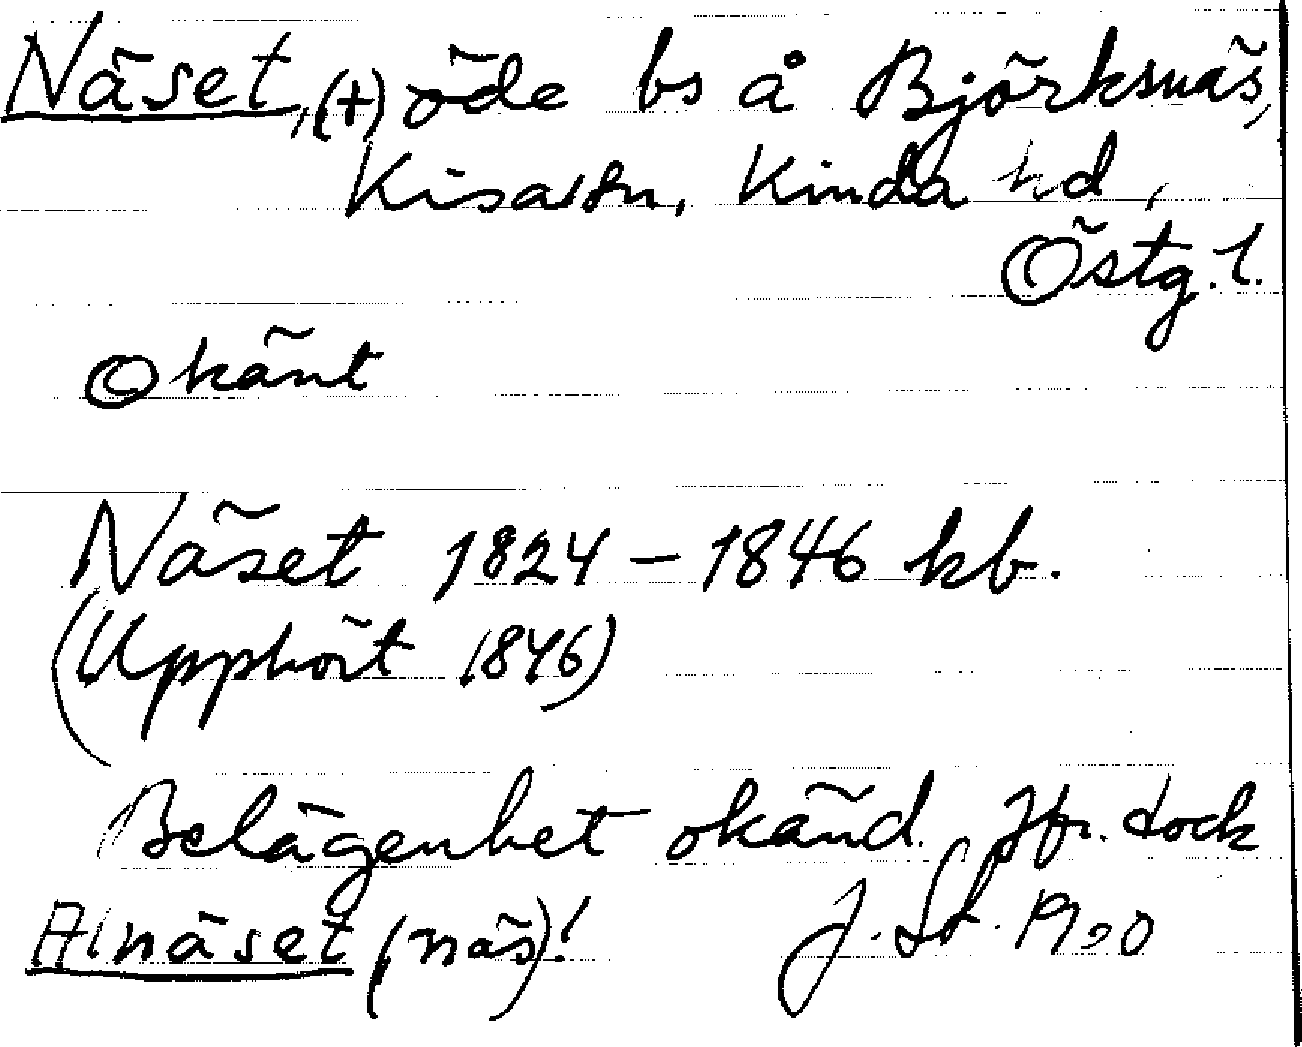 Näset, (+) öde bs å Björksnäs,
Kisa sn, Kinda hd,
Östg. l.
Okänt
Näset 1824 – 1846 kb.
(Upphört 1846)
Belägenhet okänd. Jfr. dock
Alnäset (näs)! J. St. 1920